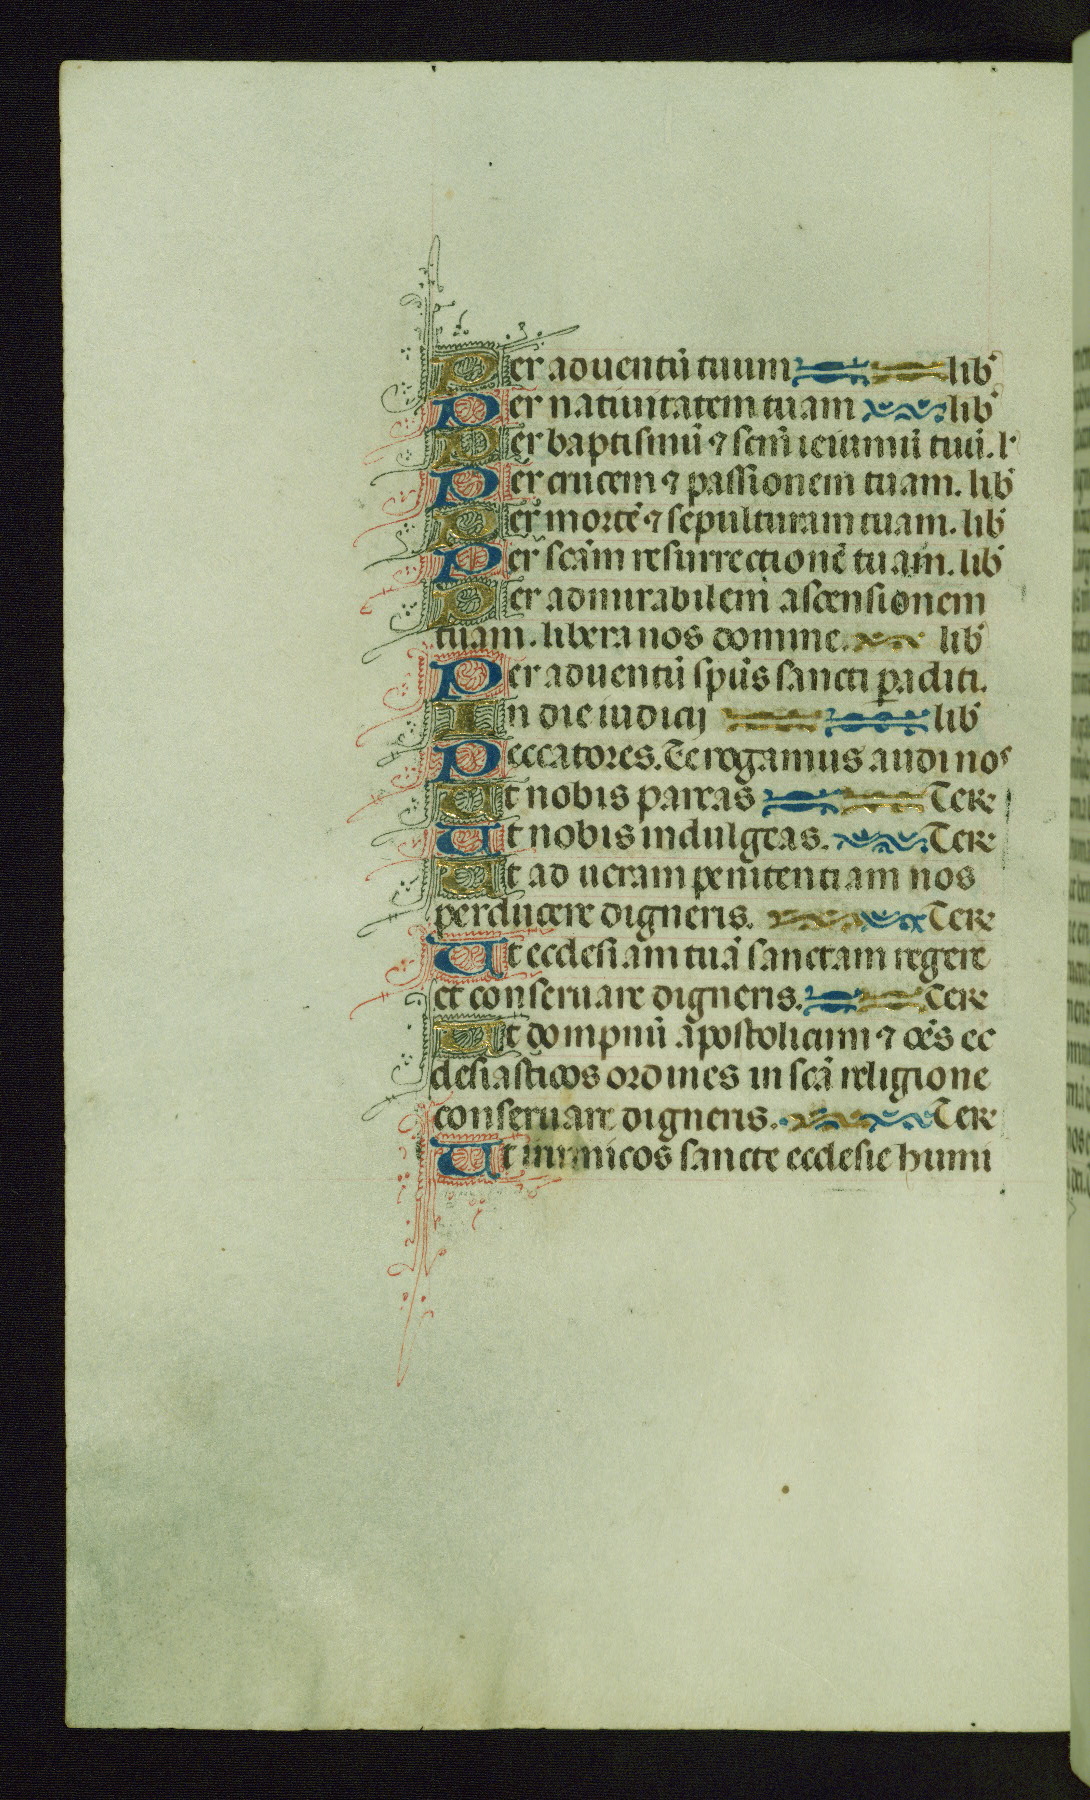 Per aduentū tuum lib
Per natiuitatem tuam lib
Per baptismū ⁊ scm̄ ieiuniū tuū. l
Per crucem ⁊ passionem tuam. lib
Per mortē ⁊ sepulturam tuam. lib
Per scam̄ resurrectionē tuam. lib
Per admirabilem ascensionem
tuam. libera nos domine. lib
Per aduentū spūs sancti paracliti.
In die iudicij lib
Peccatores. Te rogamus audi nos
Ut nobis parcas Te R
Ut nobis indulgeas. Te R
Ut ad ueram penitentiam nos
perducere digneris. Te R
Ut ecclesiam tuā sanctam regere
et conseruare digneris. Te R
Ut dompnū apostolicum ⁊ oēs ec
clesiasticos ordines in scā religione
conseruare digneris. Te R
Ut inimicos sancte ecclesie humi